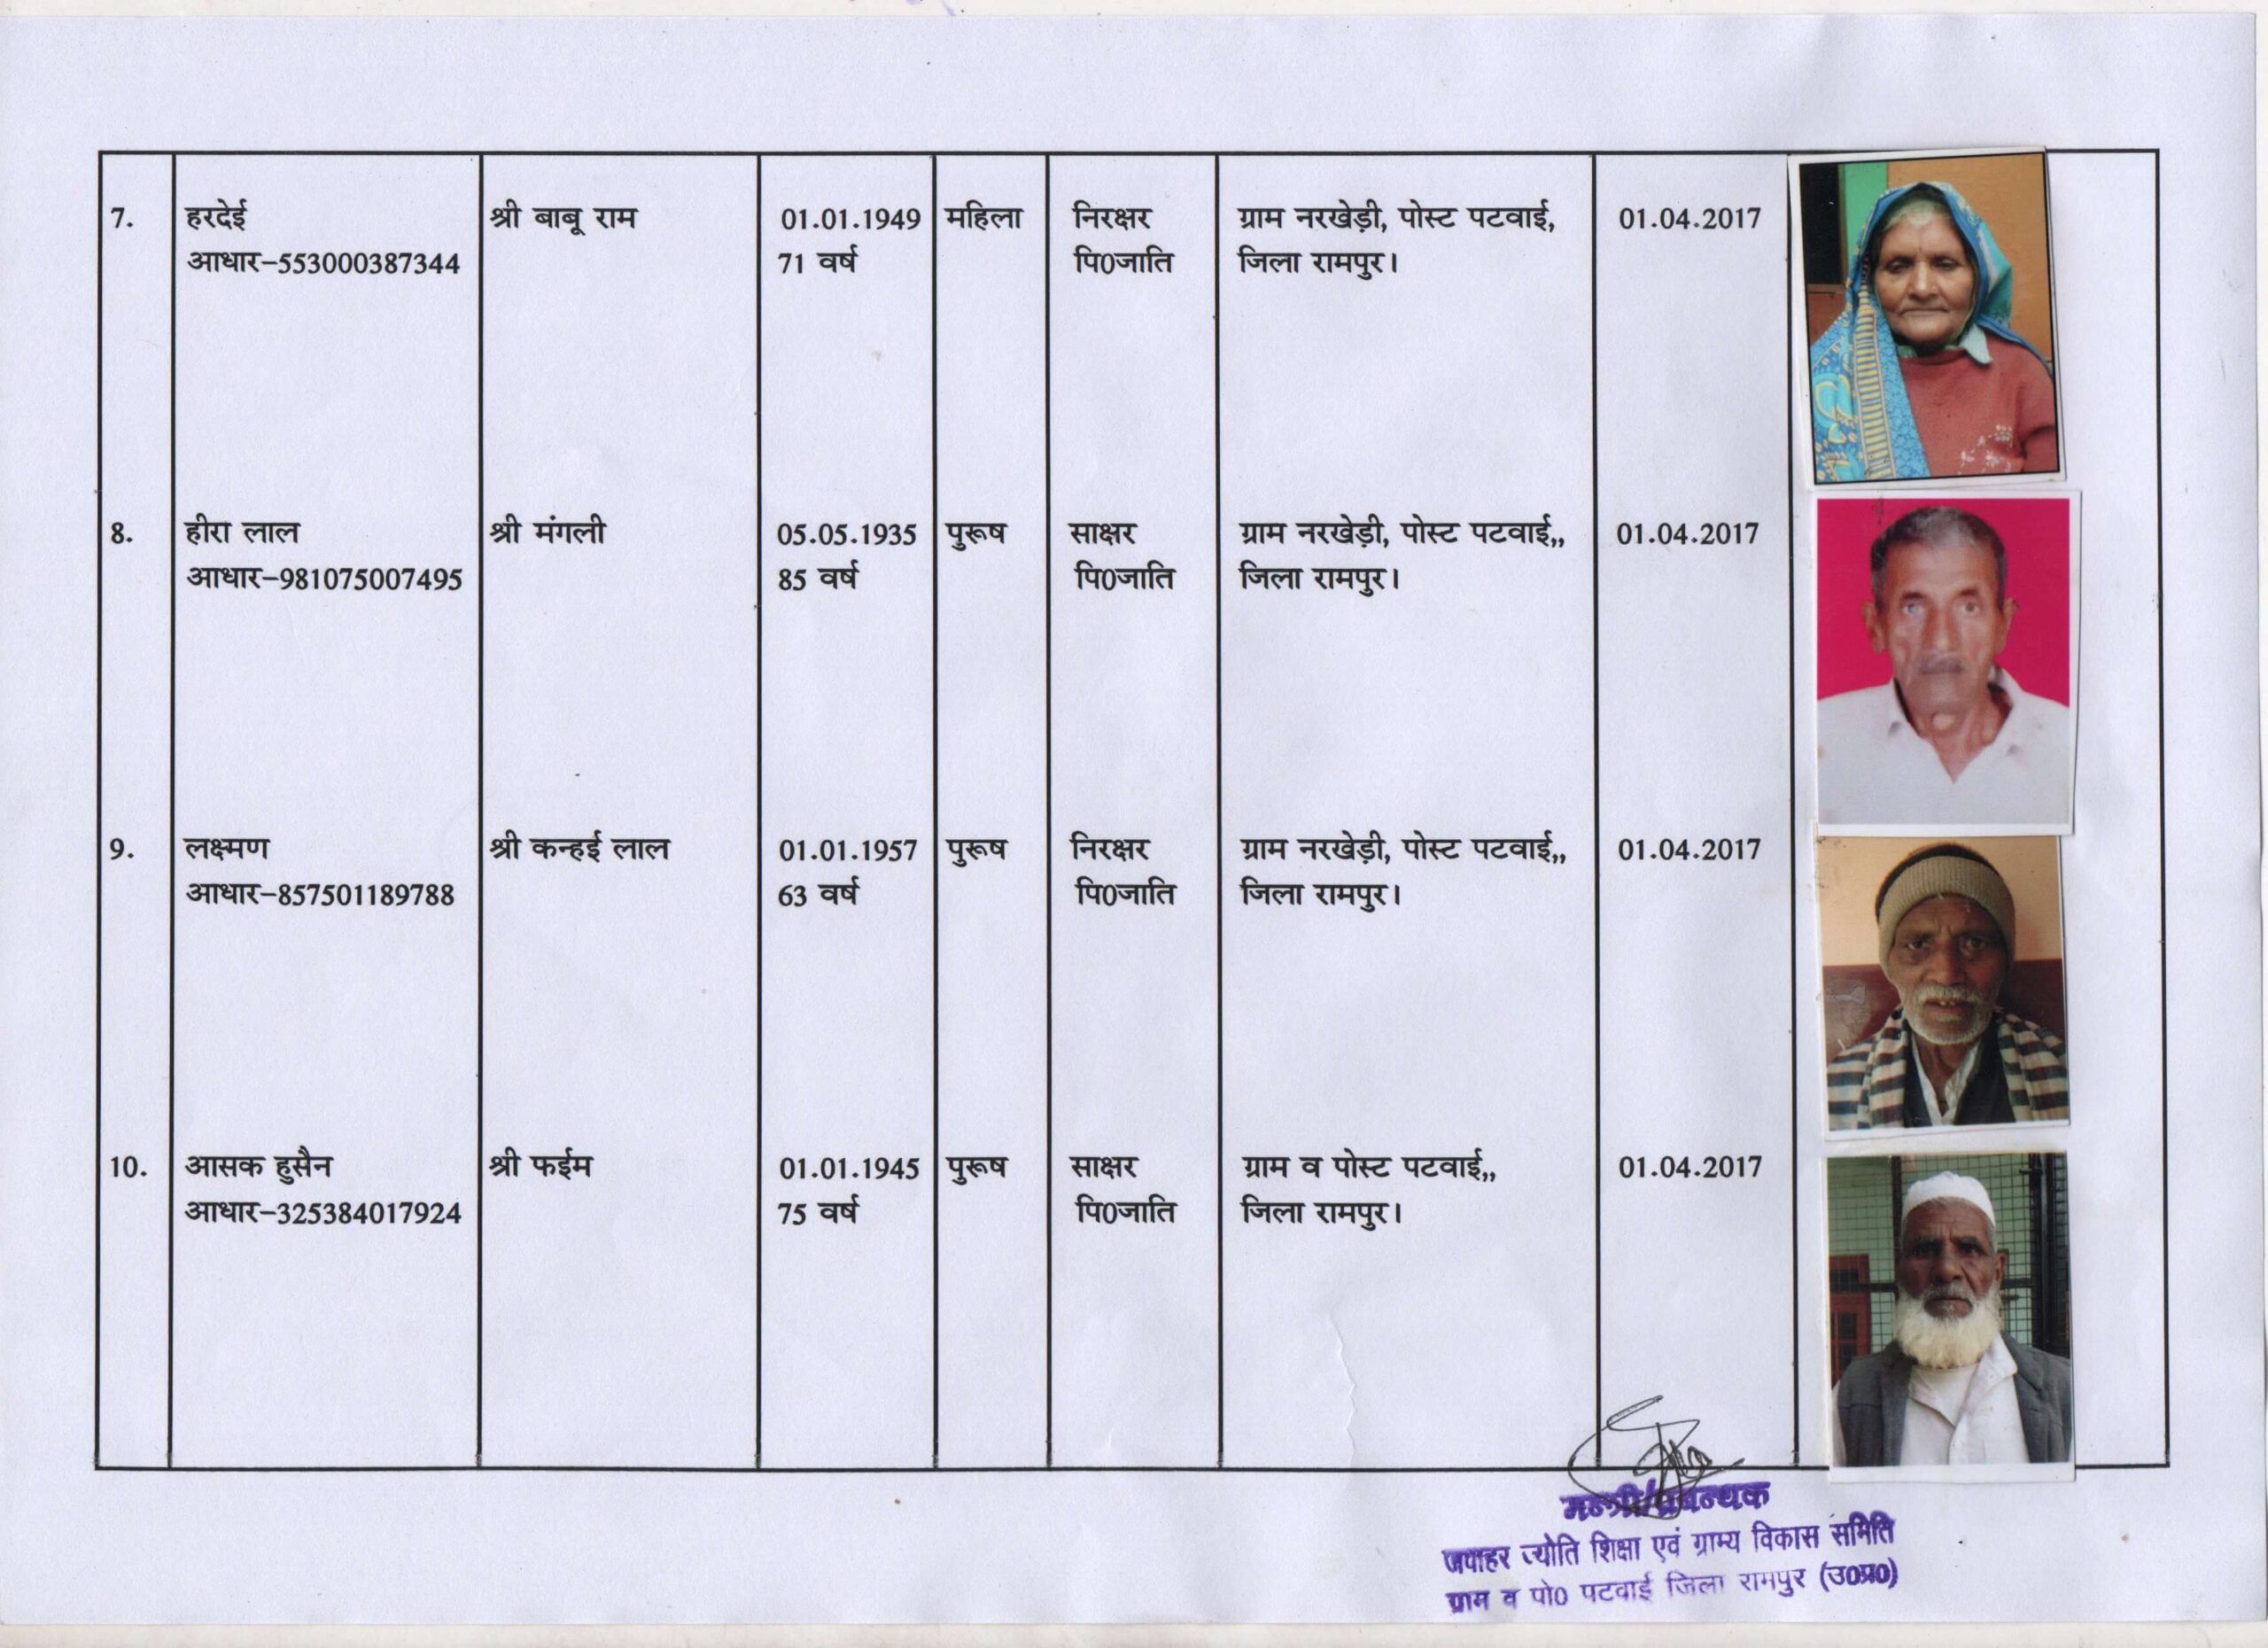 7. हरदेई श्री बाबू राम 01.01.1949 महिला निरक्षर ग्राम नरखेड़ी, पोस्ट पटवाई, 01.04.2017
आधार–553000387344 71 वर्ष पि0जाति जिला रामपुर।
8. हीरा लाल श्री मंगली 05.05.1935 पुरूष साक्षर ग्राम नरखेड़ी, पोस्ट पटवाई,, 01.04.2017
आधार–981075007495 85 वर्ष पि0जाति जिला रामपुर।
9. लक्ष्मण श्री कन्हई लाल 01.01.1957 पुरूष निरक्षर ग्राम नरखेड़ी, पोस्ट पटवाई,, 01.04.2017
आधार–857501189788 63 वर्ष पि0जाति जिला रामपुर।
10. आसक हुसैन श्री फईम 01.01.1945 पुरूष साक्षर ग्राम व पोस्ट पटवाई,, 01.04.2017
आधार–325384017924 75 वर्ष पि0जाति जिला रामपुर।
मन्त्री/प्रबन्धक
जवाहर ज्योति शिक्षा एवं ग्राम्य विकास समिति
ग्राम व पो0 पटवाई जिला रामपुर (उ0प्र0)